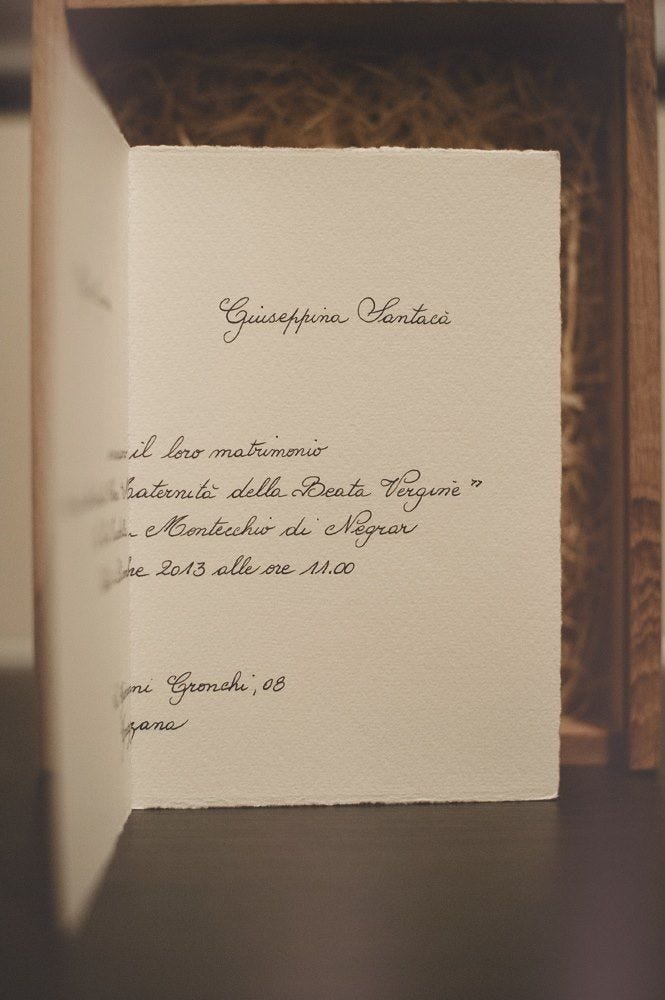 Giuseppina Santacà
il loro matrimonio
Maternità della Beata Vergine"
Montecchio di Negrar
2013 alle ore 11.00
Gronchi, 08